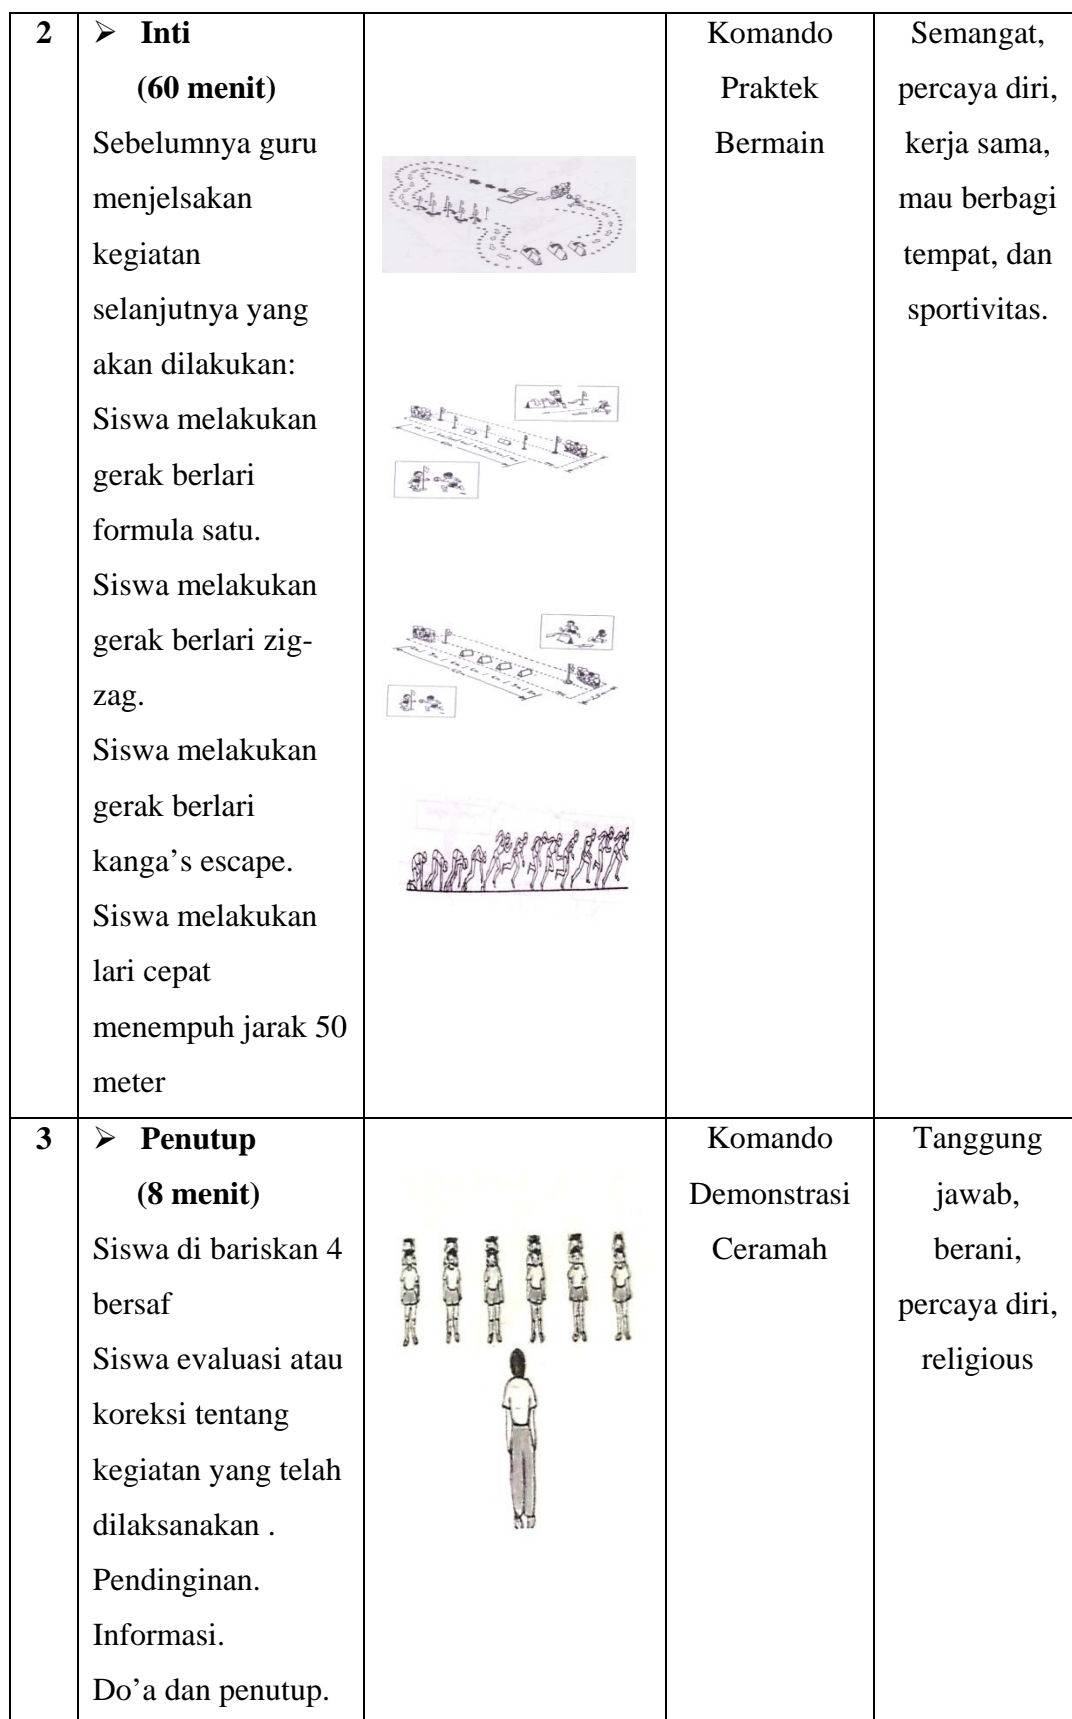 2
➢ Inti
(60 menit)
Sebelumnya guru
menjelsakan
kegiatan
selanjutnya yang
akan dilakukan:
Siswa melakukan
gerak berlari
formula satu.
Siswa melakukan
gerak berlari zig-
zag.
Siswa melakukan
gerak berlari
kanga’s escape.
Siswa melakukan
lari cepat
menempuh jarak 50
meter
Komando
Praktek
Bermain
Semangat,
percaya diri,
kerja sama,
mau berbagi
tempat, dan
sportivitas.
3
➢ Penutup
(8 menit)
Siswa di bariskan 4
bersaf
Siswa evaluasi atau
koreksi tentang
kegiatan yang telah
dilaksanakan .
Pendinginan.
Informasi.
Do’a dan penutup.
Komando
Demonstrasi
Ceramah
Tanggung
jawab,
berani,
percaya diri,
religious